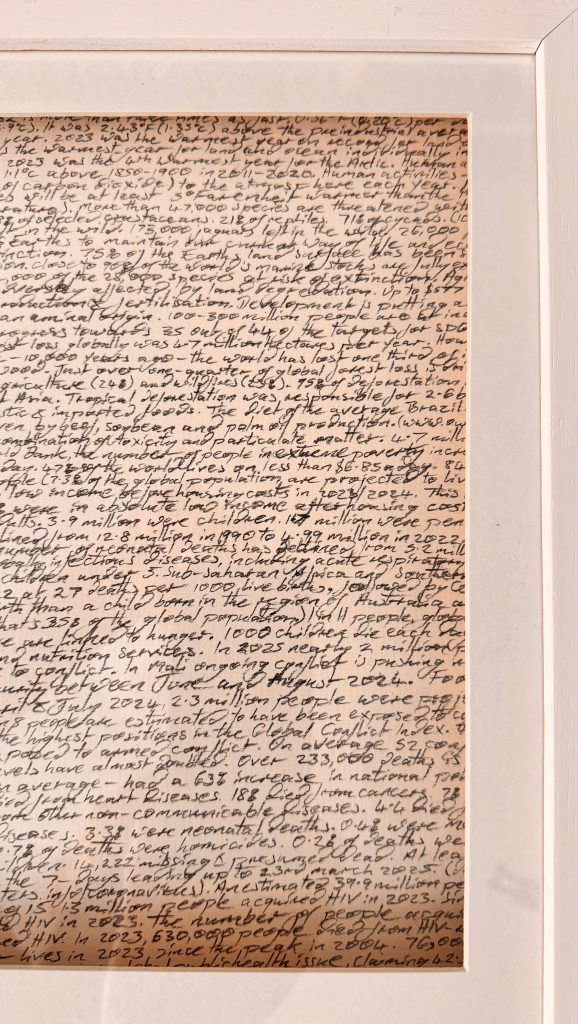 is more than three times as fast. 0.36°F (0.20°c) per
.9°c), it was 2.43°F (1.35°c) above the preindustrial avera
year. 2023 was the warmest year on record for land
s the warmest year for land and ocean individually in
2023 was the 4th warmest year for the Arctic. Human a
1.1°c above 1850-1900 in 2011-2020. Human activities
of carbon dioxide) to the atmosphere each year.
will be at least 5° farenheit warmer than the
more than 47,000 species are threatened with
% of selected crustaceans. 21% of reptiles. 71% of cycads. (IU
left in the wild. 173,000 jaguars left in the world. 26,000
earths to maintain our current way of life and eco
inction. 75% of the Earth's land surface has been si
on. close to 90% of the world's marine stocks are fully ex
,000 of the 28,000 species at risk of extinction. Ag
adversely affected by land degradation. Up to $577
roduction & fertilisation. Development is putting a
an animal origin. 100-300 million people are at in
rogress towards 35 out of 44 of the targets for SDG
st loss globally was 4.7 million hectares per year. How
- 10,000 years ago - the world has lost one third of i
2000. Just over one-quarter of global forest loss is dri
griculture (24%) and wildfires (23%). 95% of deforestation
t Asia. Tropical deforestation was responsible for 2.6 b
stic & imported foods. The diet of the average Brazil
ven by beef, soybean and palm oil production. (www.our
ombination of toxicity and particulate matter. 4.7 mill
ld Bank, the number of people in extreme poverty incre
day. 47% of the world lives on less than $6.85 a day. 84
ople (7.3% of the global population, are projected to liv
low income before housing costs in 2023/2024. This
were in absolute low income after housing cost
ults. 3.9 million were children. million were pen
lined from 12.8 million in 1990 to 4.99 million in 2022,
number of neonatal deaths has declined from 5.2 mill
infectious diseases, including acute respirator
children under 5. Sub-Saharan Africa and Southern
2, at 27 deaths per 1000 live births, followed by Ce
irth than a child born in the region of Australia a
hat's 35% of the global population). 1 in 11 people, globa
e are linked to hunger. 1000 children die each da
ng nutrition services. In 2025 nearly 2 million
to conflict. In Mali ongoing conflict is pushing in
curity between June and August 2024. Foo
& July 2024, 2.3 million people were proje
n 8 people are estimated to have been exposed to co
the highest positions in the Global Conflict Index.
posed to armed conflict. On average 52,000
vels have almost doubled. Over 233,000 deaths
n average - had a 63% increase in national
died from heart diseases. 18% died from cancers.
om other non-communicable diseases. 4.4 died
diseases. 3.3% were neonatal deaths. 0.4% were m
.7% of deaths were homicides. 0.2% of deaths we
14,222 missing & presumed dead. At lea
the 7-days leading up to 23rd March 2025. (
ters.info/coronavirus). An estimated 39.9 million pe
of 15. 1.3 million people acquired HIV in 2023.
d HIV in 2023. The number of people acqui
ed HIV. In 2023, 630,000 people died from HIV-
- lives in 2023, since the peak in 2004. 76,00
health issue, claiming 42.